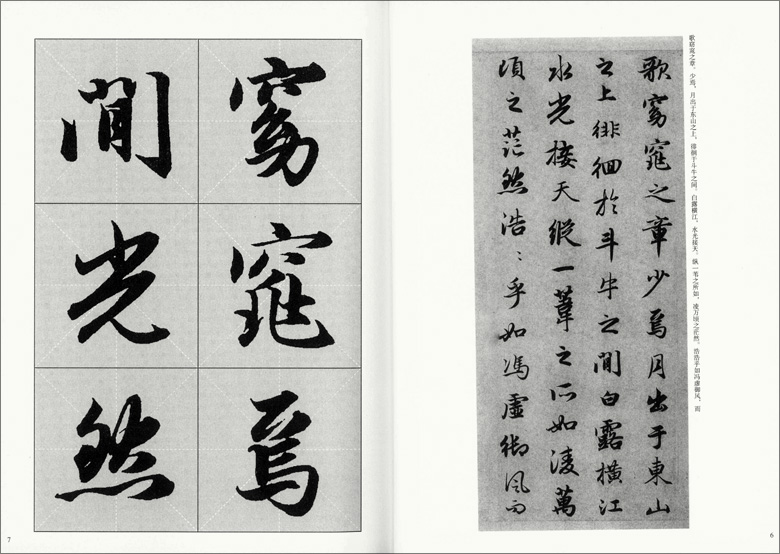 歌窈窕之章。少焉，月出于东山之上，徘徊于斗牛之间。白露横江，水光接天。纵一苇之所如，凌万顷之茫然。浩浩乎如冯虚御风，而
歌窈窕之章少焉月出于東山
之上徘徊於斗牛之間白露橫江
水光接天縱一葦之所如淩萬
頃之茫然浩〻乎如馮虛御風而
6
窈窕焉
間光然
7